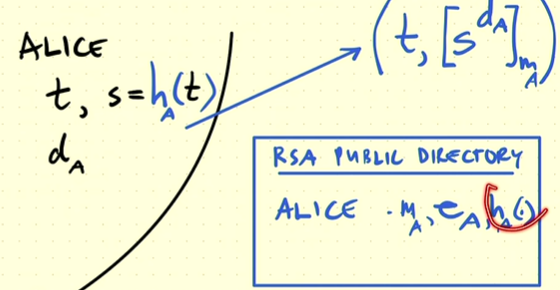 ALICE
t, s=h_A(t)
d_A
(t, [s^{d_A}]_{m_A})
RSA PUBLIC DIRECTORY
ALICE . m_A, e_A, h_A(·)